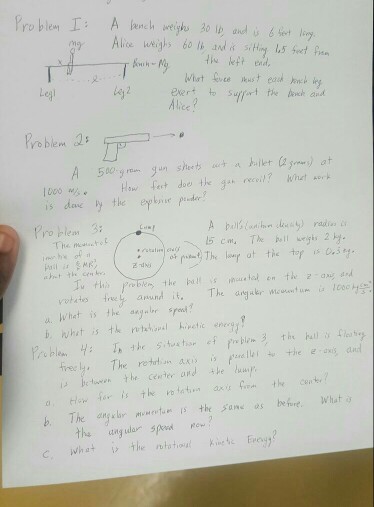 Problem I: A bench weighs 30 lb, and is 6 feet long.
Alice weighs 60 lb and is sitting 1.5 feet from
the left end.
mg
x
Bench = Mg
L
Leg 1
Leg 2
What force must each bench leg
exert to support the bench and
Alice?
Problem 2:
A 500-gram gun shoots out a bullet (2 grams) at
1000 m/s. How fast does the gun recoil? What work
is done by the explosive powder?
Problem 3:
Lump
The moment of
inertia of a
ball is 2/5 MR²
about the center.
rotation axis
at present
z-axis
A ball's (uniform density) radius is
15 cm. The ball weighs 2 kg.
The lump at the top is 0.5 kg.
In this problem, the ball is mounted on the z-axis and
rotates freely around it. The angular momentum is 1000
a. What is the angular speed?
b. What is the rotational kinetic energy?
Problem 4: In the situation of problem 3, the ball is floating
freely. The rotation axis is parallel to the z-axis, and
is between the center and the lump.
a. How far is the rotation axis from the center?
b. The angular momentum is the same as before. What is
the angular speed now?
c. What is the rotational kinetic Energy?